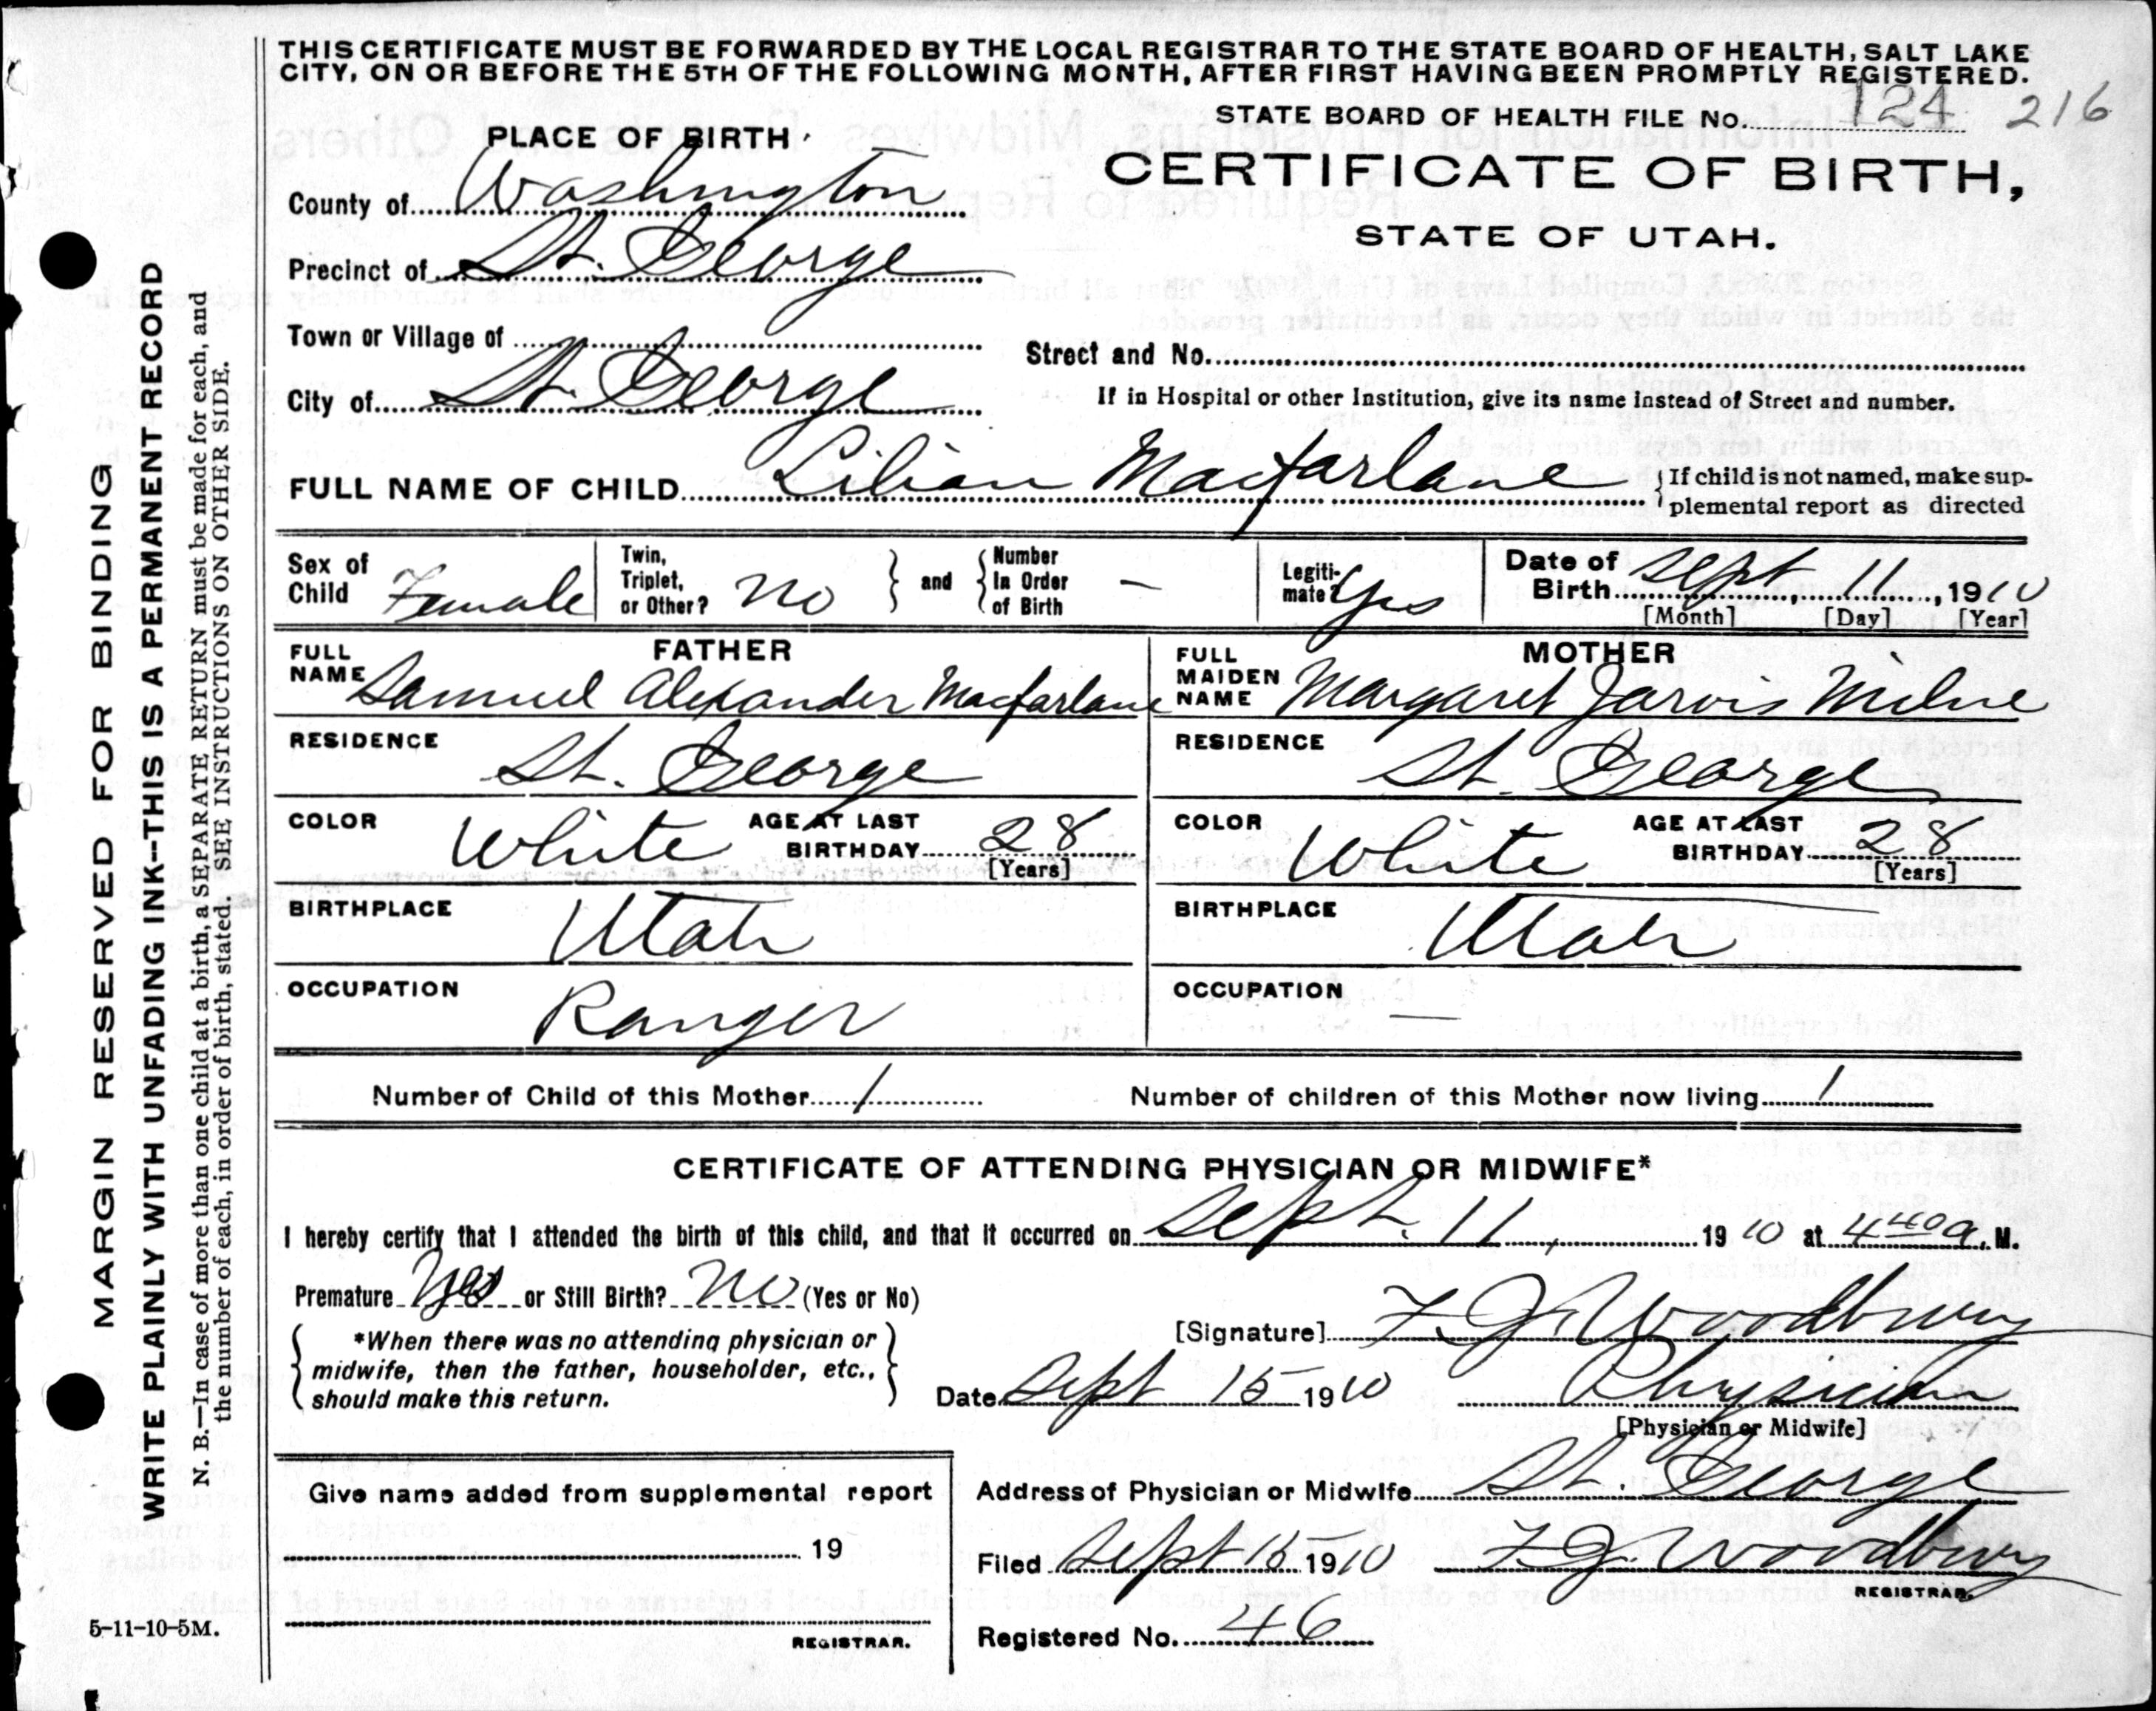 THIS CERTIFICATE MUST BE FORWARDED BY THE LOCAL REGISTRAR TO THE STATE BOARD OF HEALTH, SALT LAKE
CITY, ON OR BEFORE THE 5TH OF THE FOLLOWING MONTH, AFTER FIRST HAVING BEEN PROMPTLY REGISTERED.
STATE BOARD OF HEALTH FILE No. 124 216
PLACE OF BIRTH
CERTIFICATE OF BIRTH,
STATE OF UTAH.
County of Washington
Precinct of St. George
Town or Village of
Street and No.
City of St. George
If in Hospital or other Institution, give its name Instead of Street and number.
FULL NAME OF CHILD Lilian Macfarlane { If child is not named, make sup-
plemental report as directed
Sex of Child Female
Twin, Triplet, or Other? No } and { Number In Order of Birth —
Legiti-mate? Yes
Date of Birth Sept 11, 1910
[Month] [Day] [Year]
FATHER
FULL NAME Samuel Alexander Macfarlane
MOTHER
FULL MAIDEN NAME Margaret Jarvis Milne
RESIDENCE St. George
RESIDENCE St. George
COLOR White AGE AT LAST BIRTHDAY 28 [Years]
COLOR White AGE AT LAST BIRTHDAY 28 [Years]
BIRTHPLACE Utah
BIRTHPLACE Utah
OCCUPATION Ranger
OCCUPATION —
Number of Child of this Mother 1 Number of children of this Mother now living 1
CERTIFICATE OF ATTENDING PHYSICIAN OR MIDWIFE*
I hereby certify that I attended the birth of this child, and that it occurred on Sept. 11, 1910 at 4 40 a. M.
Premature Yes or Still Birth? No (Yes or No)
*When there was no attending physician or
midwife, then the father, householder, etc.,
should make this return.
[Signature] F. J. Woodbury
Date Sept 15 1910 Physician
[Physician or Midwife]
Give name added from supplemental report
19
REGISTRAR.
Address of Physician or Midwife St. George
Filed Sept 15 1910 F. J. Woodbury
REGISTRAR.
Registered No. 46
5-11-10-5M.
MARGIN RESERVED FOR BINDING
WRITE PLAINLY WITH UNFADING INK--THIS IS A PERMANENT RECORD
N. B.—In case of more than one child at a birth, a SEPARATE RETURN must be made for each, and
the number of each, in order of birth, stated. SEE INSTRUCTIONS ON OTHER SIDE.